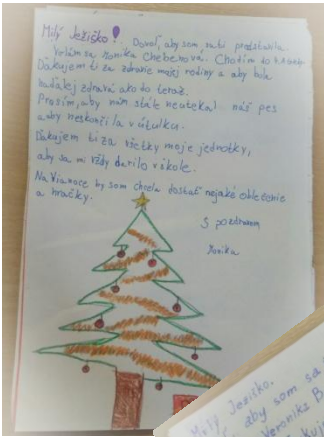 Milý Ježiško! Dovoľ, aby som sa ti predstavila.
Volám sa Monika Chebenová. Chodím do
Ďakujem ti za zdravie mojej rodiny a aby bola
naďalej zdravá ako do teraz.
Prosím, aby nám stále neutekal náš pes
a aby neskončila v útulku.
Ďakujem ti za všetky moje jednotky,
aby sa mi vždy darilo v škole.
Na Vianoce by som chcela dostať nejaké oblečenie
a hračky.
S pozdravom
Monika
Milý Ježiško.
aby som sa
Veronika B